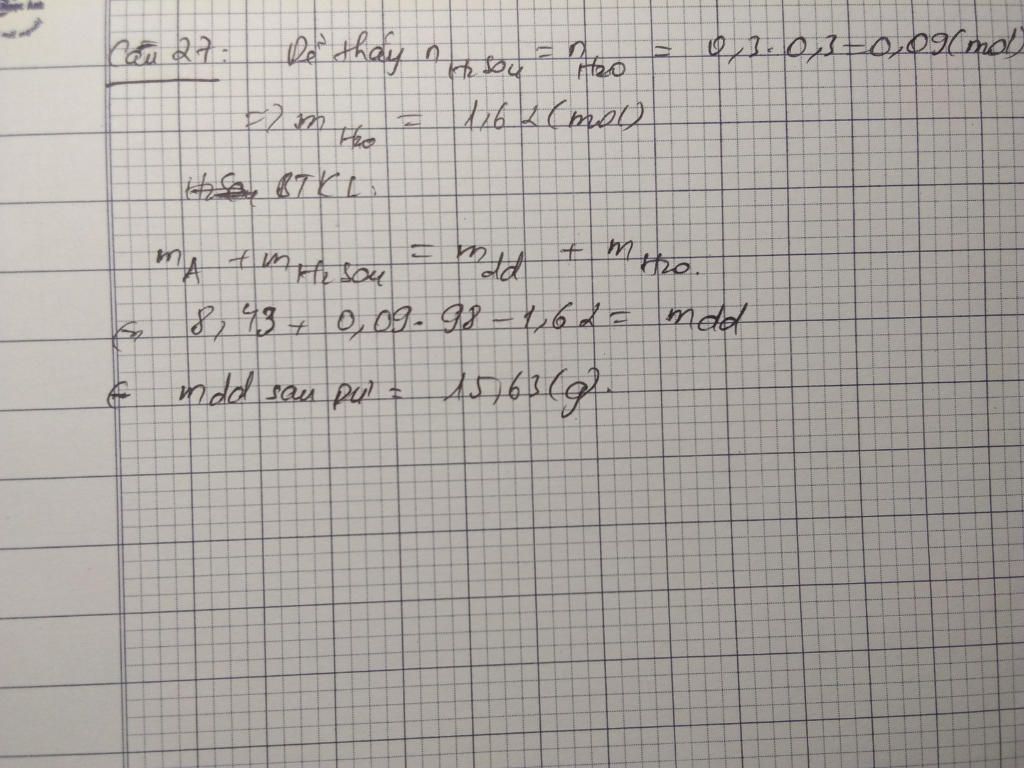 Câu 27: Dễ thấy nH2SO4 = nH2O = 0,3.0,3=0,09(mol)
=> mH2O = 1,62(mol)
BTKL:
mA + mH2SO4 = mdd + mH2O.
<=> 8,43 + 0,09.98-1,62= mdd
mdd sau pư = 15,63(g).